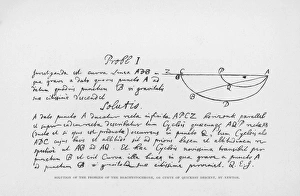 Probl I
Investiganda est curva Linea ADB in
qua grave a dato quovis puncto A ad
datum quodvis punctum B vi gravitatis
suæ citissime descendet
Solutio.
A dato puncto A ducatur recta infinita APCZ horizonti parallela
et super eadem recta describatur tum Cyclois quæcunque AQP rectæ AB
(ductæ et si opus est productæ) occurrens in puncto Q, tum Cyclois alia
ADC cujus basis et altitudo sit ad prioris basem et altitudinem respective
ut AB ad AQ. Et hæc Cyclois novissima transibit per
punctum B et erit Curva illa linea in qua grave a puncto A
ad punctum B vi gravitatis suæ citissime perveniet. Q.E.I.
Z C P A
B
Q
D
SOLUTION OF THE PROBLEM OF THE BRACHISTOCHRONE, OR CURVE OF QUICKEST DESCENT, BY NEWTON.